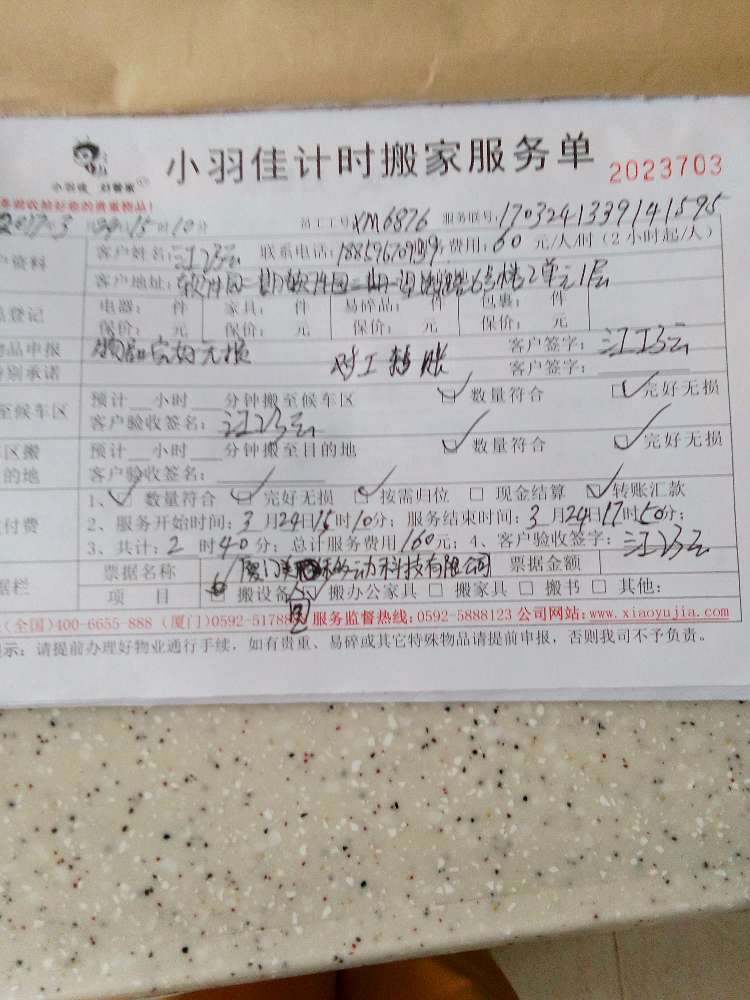 小羽佳计时搬家服务单 2023703
小羽佳 好管家
2017-3 15时10分 员工工号XM6876 服务联号:1703241339141595
客户姓名: 联系电话: 费用:60元/人/时(2小时起/人)
户资料
客户地址: 2单元1层
电器: 件 家具: 件 易碎品: 件 包裹: 件
品登记
保价: 元 保价: 元 保价: 元 保价: 元
物品申报 完好无损 对工转账 客户签字:
特别承诺 客户签字:
预计__小时___分钟搬至候车区 数量符合 完好无损
至候车区
客户验收签名:
区搬 预计__小时___分钟搬至目的地 数量符合 完好无损
的地 客户验收签名:
1、 数量符合 完好无损 按需归位 现金结算 转账汇款
付费 2、服务开始时间:3月24日15时10分; 服务结束时间:3月24日17时50分;
3、共计:2时40分; 总计服务费用160元; 4、客户验收签字:
票据名称 科技有限公司 票据金额
据栏
项 目 搬设备 搬办公家具 搬家具 搬书 其他:
(全国)400-6655-888 (厦门)0592-5178 服务监督热线:0592-5888123 公司网站:www.xiaoyujia.com
示: 请提前办理好物业通行手续,如有贵重、易碎或其它特殊物品请提前申报,否则我司不予负责。